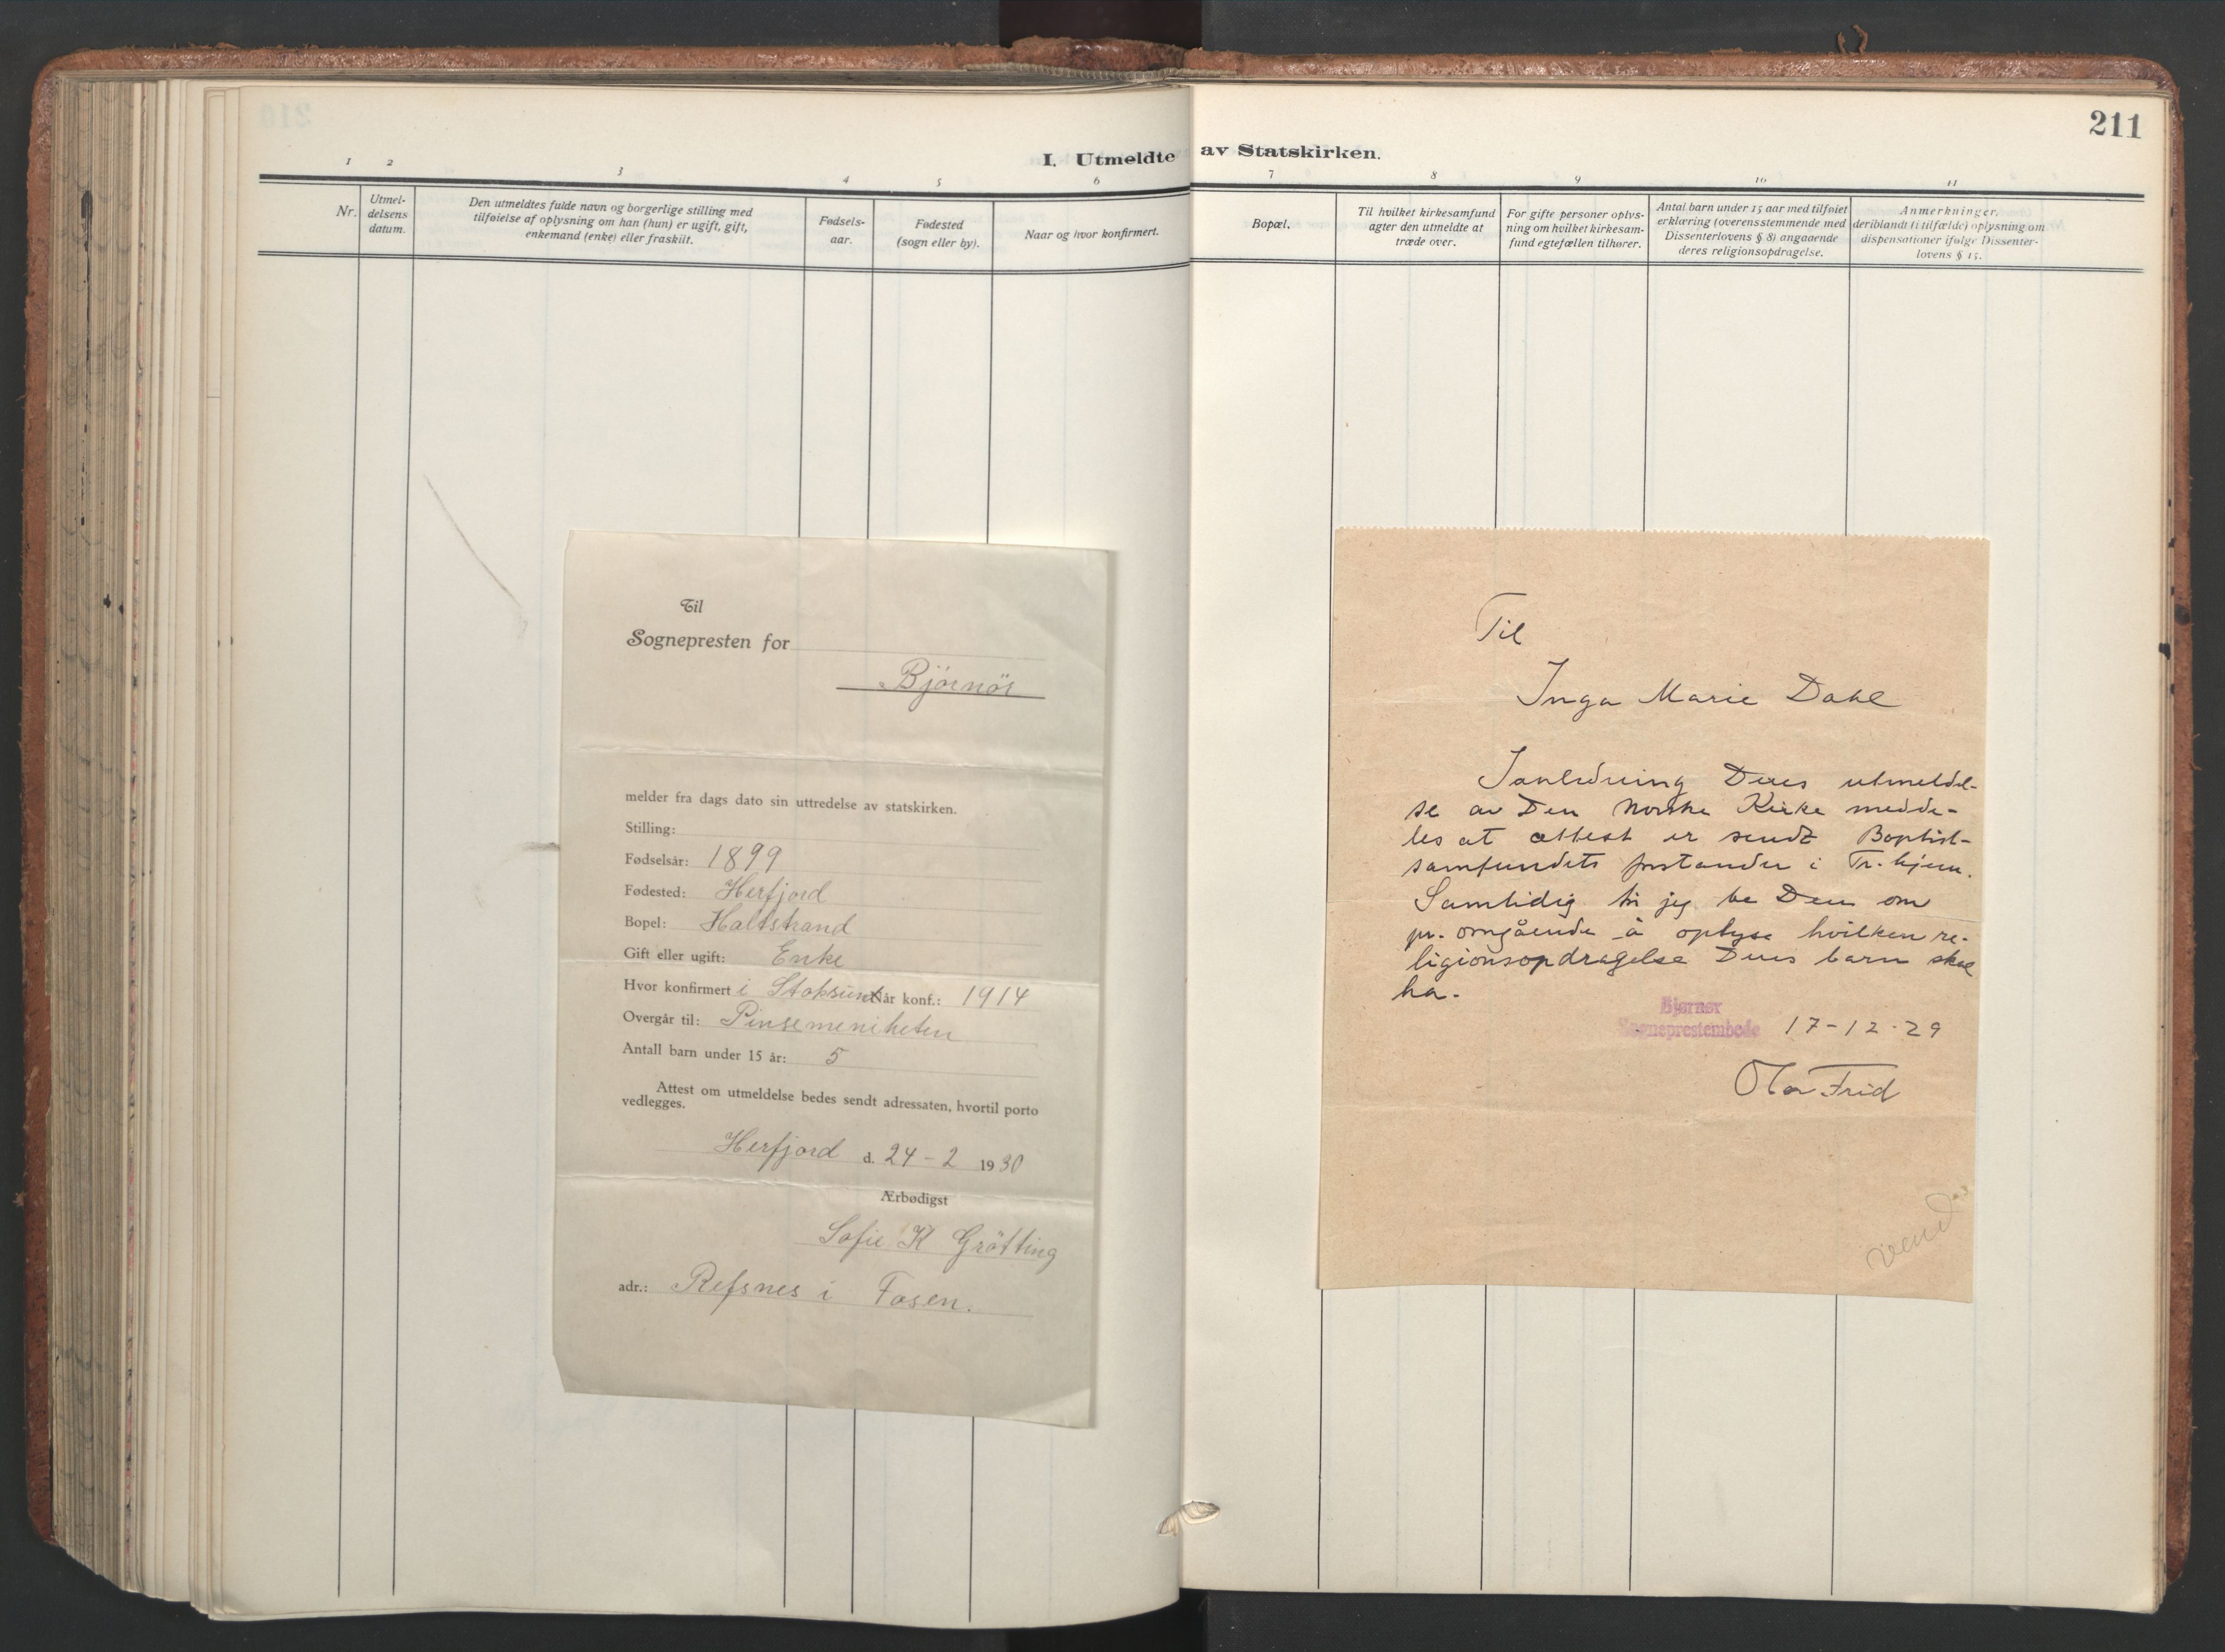 211
I. Utmeldte av Statskirken.
1 2 3 4 5 6 7 8 9 10 11
Nr.
Utmel-
delsens
datum.
Den utmeldtes fulde navn og borgerlige stilling med
tilføielse af oplysning om han (hun) er ugift, gift,
enkemand (enke) eller fraskilt.
Fødsels-
aar.
Fødested
(sogn eller by).
Naar og hvor konfirmert.
Bopæl.
Til hvilket kirkesamfund
agter den utmeldte at
træde over.
For gifte personer oplys-
ning om hvilket kirkesam-
fund egtefællen tilhører.
Antal barn under 15 aar med tilføiet
erklæring (overensstemmende med
Dissenterlovens § 8) angaaende
deres religionsopdragelse.
Anmerkninger,
deriblandt (i tilfælde) oplysning om
dispensationer ifølge Dissenter-
lovens § 15.
Til
Sognepresten for
Björnör
melder fra dags dato sin uttredelse av statskirken.
Stilling:
Fødselsår: 1899
Fødested: Herfjord
Bopel: Haltstrand
Gift eller ugift: Enke
Hvor konfirmert i Stoksund Når konf.: 1914
Overgår til: Pinsemeniheten
Antall barn under 15 år: 5
Attest om utmeldelse bedes sendt adressaten, hvortil porto
vedlegges.
Herfjord d. 24-2 1930
Ærbødigst
Sofie K Grötting
adr.: Refsnes i Fosen.
Til
Inga Marie Dahl
Ianledning Deres utmeldel-
se av Den Norske Kirke medde-
les at attest er sendt Baptist-
samfundets forstander i Tr.hjem.
Samtidig må jeg be Dem om
pr. omgående å oplyse hvilken re-
ligionsopdragelse Deres barn skal
ha.
Bjørnør
Sogneprestembede 17-12-29
Ola Frid
vend